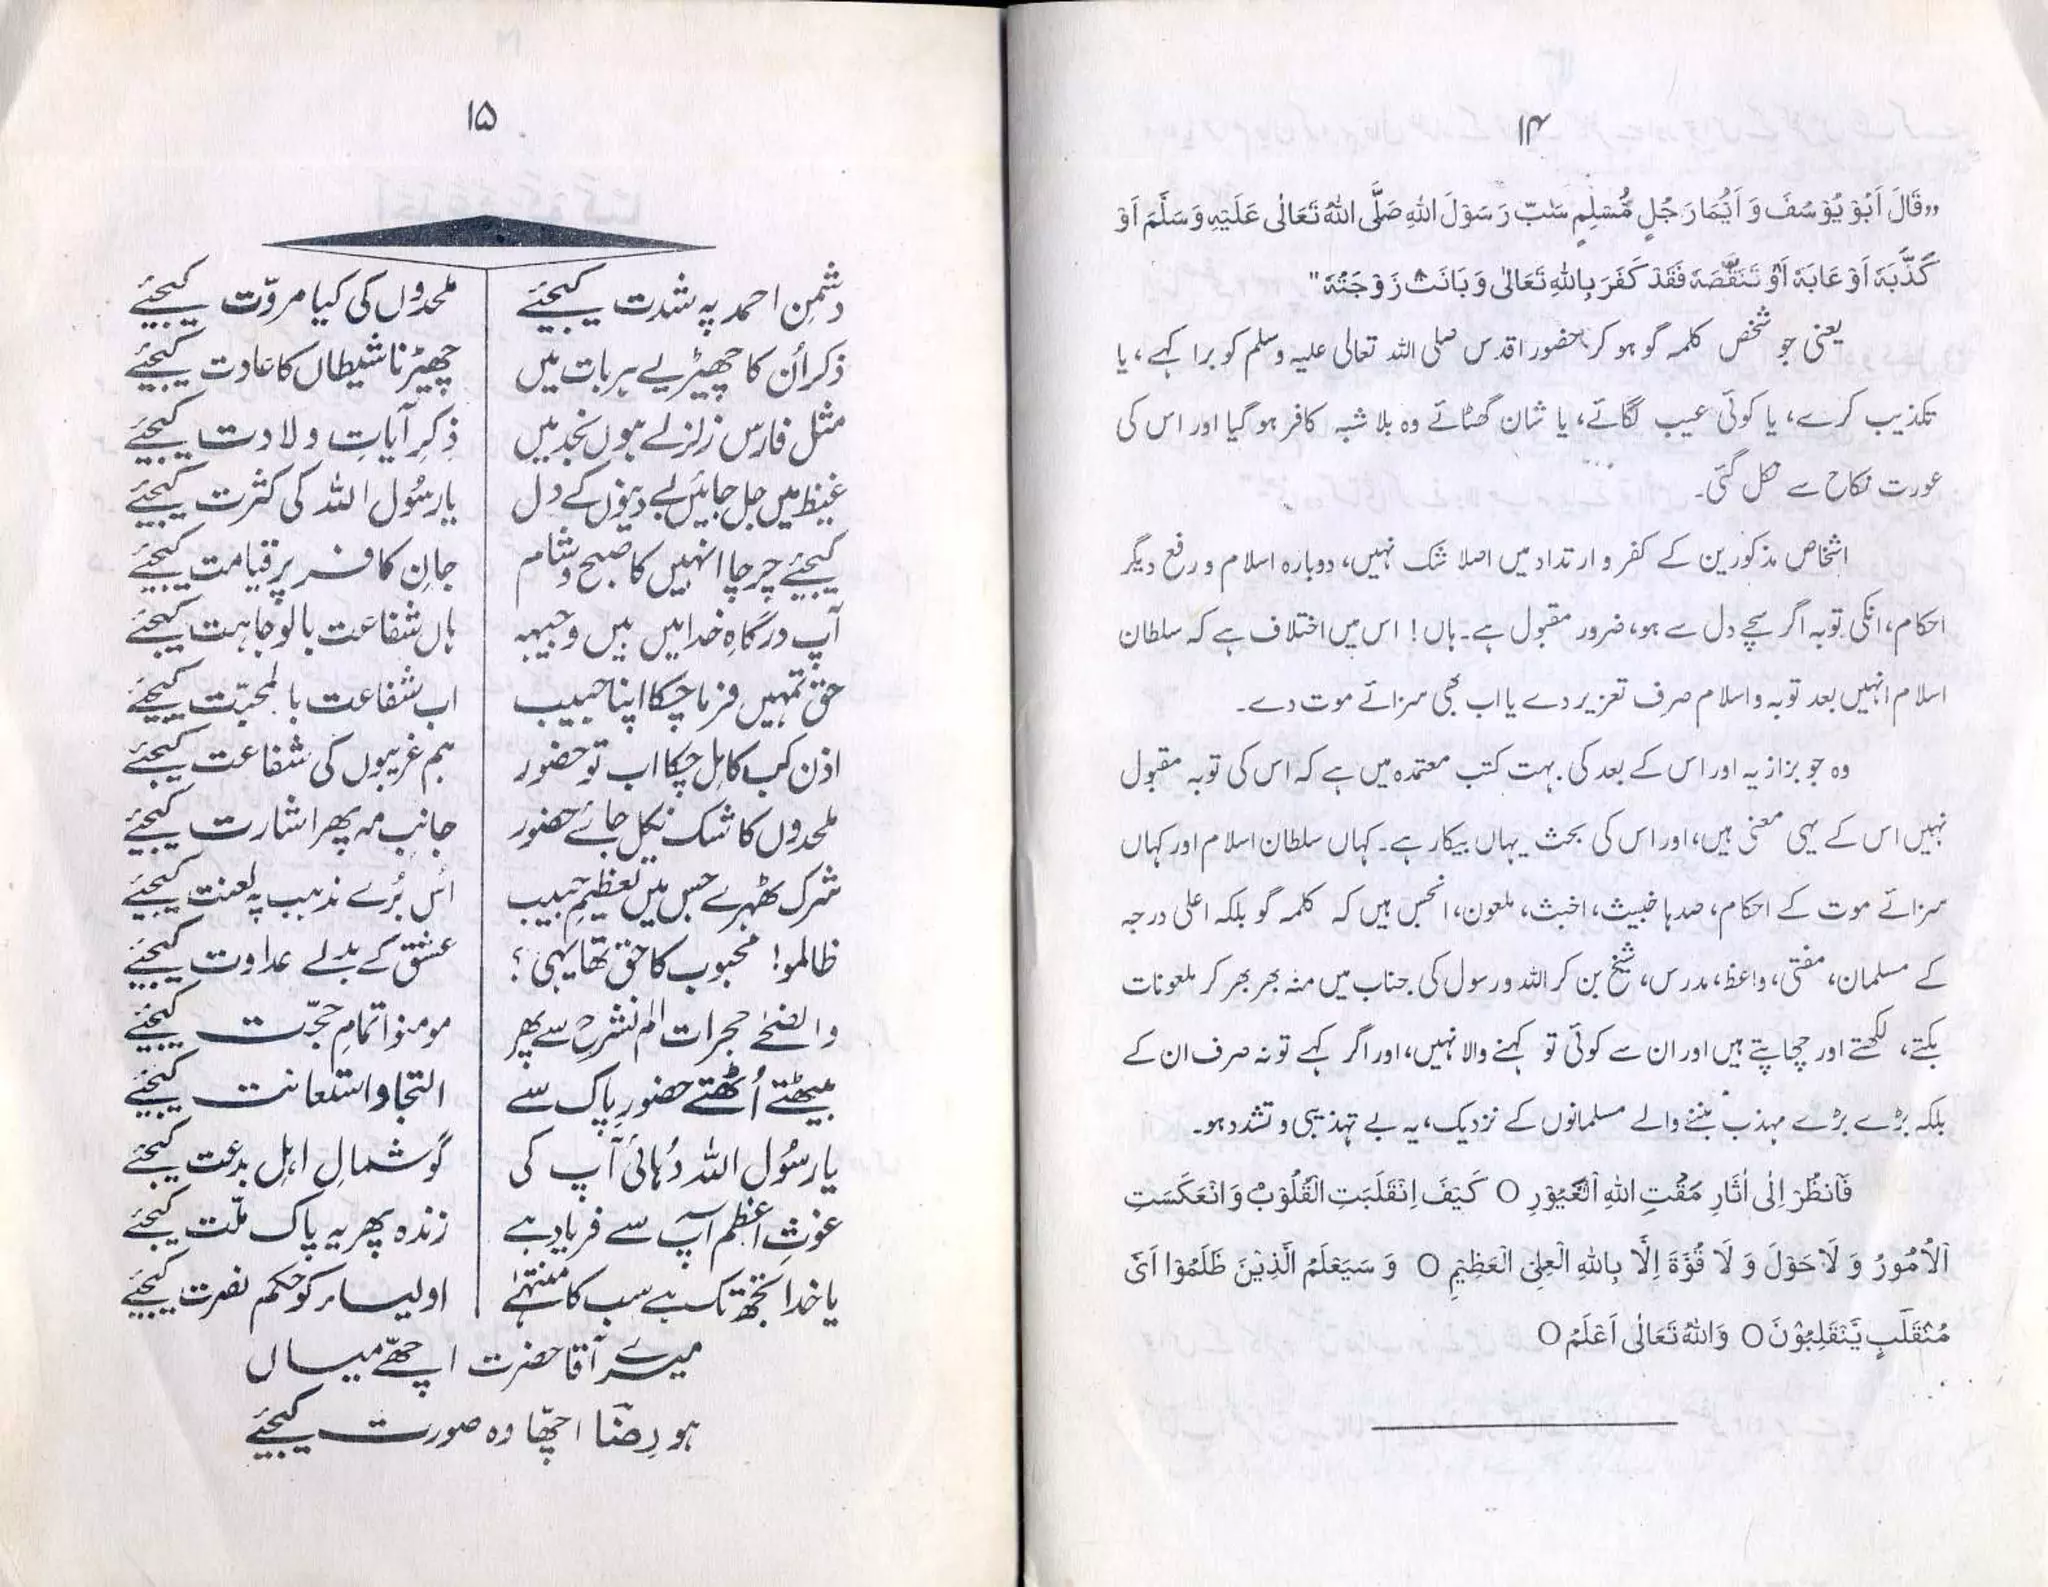 ۱۴
”قَالَ اَبُوْ یُوْسُفَ وَ اَیُّمَا رَجُلٍ مُّسْلِمٍ سَبَّ رَسُوْلَ اللهِ صَلَّی اللهُ تَعَالٰی عَلَیْهِ وَسَلَّمَ اَوْ
کَذَّبَهٗ اَوْ عَابَهٗ اَوْ تَنَقَّصَهٗ فَقَدْ کَفَرَ بِاللهِ تَعَالٰی وَ بَانَتْ زَوْجَتُهٗ"
یعنی جو شخص کلمہ گو ہو کر حضور اقدس صلی اللہ تعالی علیہ وسلم کو برا کہے، یا
تکذیب کرے، یا کوئی عیب لگائے، یا شان گھٹائے وہ بلا شبہ کافر ہو گیا اور اس کی
عورت نکاح سے نکل گئی۔
اشخاص مذکورین کے کفر و ارتداد میں اصلا شک نہیں، دوبارہ اسلام و رفع دیگر
احکام، انکی توبہ اگر سچے دل سے ہو، ضرور مقبول ہے۔ ہاں! اس میں اختلاف ہے کہ سلطان
اسلام انہیں بعد توبہ و اسلام صرف تعزیر دے یا اب بھی سزائے موت دے۔
وہ جو بزازیہ اور اس کے بعد کی بہت کتب معتمدہ میں ہے کہ اس کی توبہ مقبول
نہیں اس کے یہی معنی ہیں، اور اس کی بحث یہاں بیکار ہے۔ کہاں سلطان اسلام اور کہاں
سزائے موت کے احکام، صدہا خبیث، اخبث، ملعون، انجس ہیں کہ کلمہ گو بلکہ اعلی درجہ
کے مسلمان، مفتی، واعظ، مدرس، شیخ بن کر اللہ و رسول کی جناب میں منہ بھر بھر کر ملعونات
بکتے، لکھتے اور چھاپتے ہیں اور ان سے کوئی تو کہنے والا نہیں، اور اگر کہے تو نہ صرف ان کے
بلکہ بڑے بڑے مہذب بننے والے مسلمانوں کے نزدیک، یہ بے تہذیبی و تشدد ہو۔
فَانْظُرْ اِلٰی اٰثَارِ مَقْتِ اللهِ الْغَیُوْرِ O کَیْفَ اِنْقَلَبَتِ الْقُلُوْبُ وَانْعَکَسَتِ
الْاُمُوْرُ وَ لَا حَوْلَ وَ لَا قُوَّةَ اِلَّا بِاللهِ الْعِلِیِّ الْعَظِیْمِ O وَ سَیَعْلَمُ الَّذِیْنَ ظَلَمُوْا اَیَّ
مُنْقَلَبٍ یَّنْقَلِبُوْنَ O وَاللهُ تَعَالٰی اَعْلَمُ O
۱۵
دشمنِ احمد پہ شدت کیجئے ملحدوں کی کیا مروّت کیجئے
ذکر اُن کا چھیڑیے ہر بات میں چھیڑنا شیطاں کا عادت کیجئے
مثل فارس زلزلے ہوں نجد میں ذِکرِ آیاتِ ولادت کیجئے
غیظ میں جل جائیں بے دینوں کے دل یا رسُول اللہ کی کثرت کیجئے
کیجئے چرچا انہیں کا صبح و شام جانِ کافر پر قیامت کیجئے
آپ درگاہِ خدا میں ہیں وجیہہ ہاں شفاعت بالوجاہت کیجئے
حق تمہیں فرما چکا اپنا حبیب اب شفاعت بالمحبّت کیجئے
اذن کب کا مِل چکا اب تو حضور ہم غریبوں کی شفاعت کیجئے
ملحدوں کا شک نکل جائے حضور جانب مہ پھر اشارت کیجئے
شرک ٹھہرے جس میں تعظیمِ حبیب اُس بُرے مذہب پہ لعنت کیجئے
ظالمو! محبوب کا حق تھا یہی؟ عشق کے بدلے عداوت کیجئے
والضحٰے حجرات الم نشرح سے پھر مومنو اتمامِ حجّت کیجئے
بیٹھتے اُٹھتے حضورِ پاک سے التجا و استعانت کیجئے
یا رسُول اللہ دُہائی آپ کی گوشمالِ اہلِ بدعت کیجئے
غوثِ اعظم آپ سے فریاد ہے زندہ پھر یہ پاک ملّت کیجئے
یا خدا تجھ تک ہے سب کا منتہٰے اولیاء کو حکم نصرت کیجئے
میرے آقا حضرت اچھے میاں
ہو رضؔا اچھا وہ صورت کیجئے